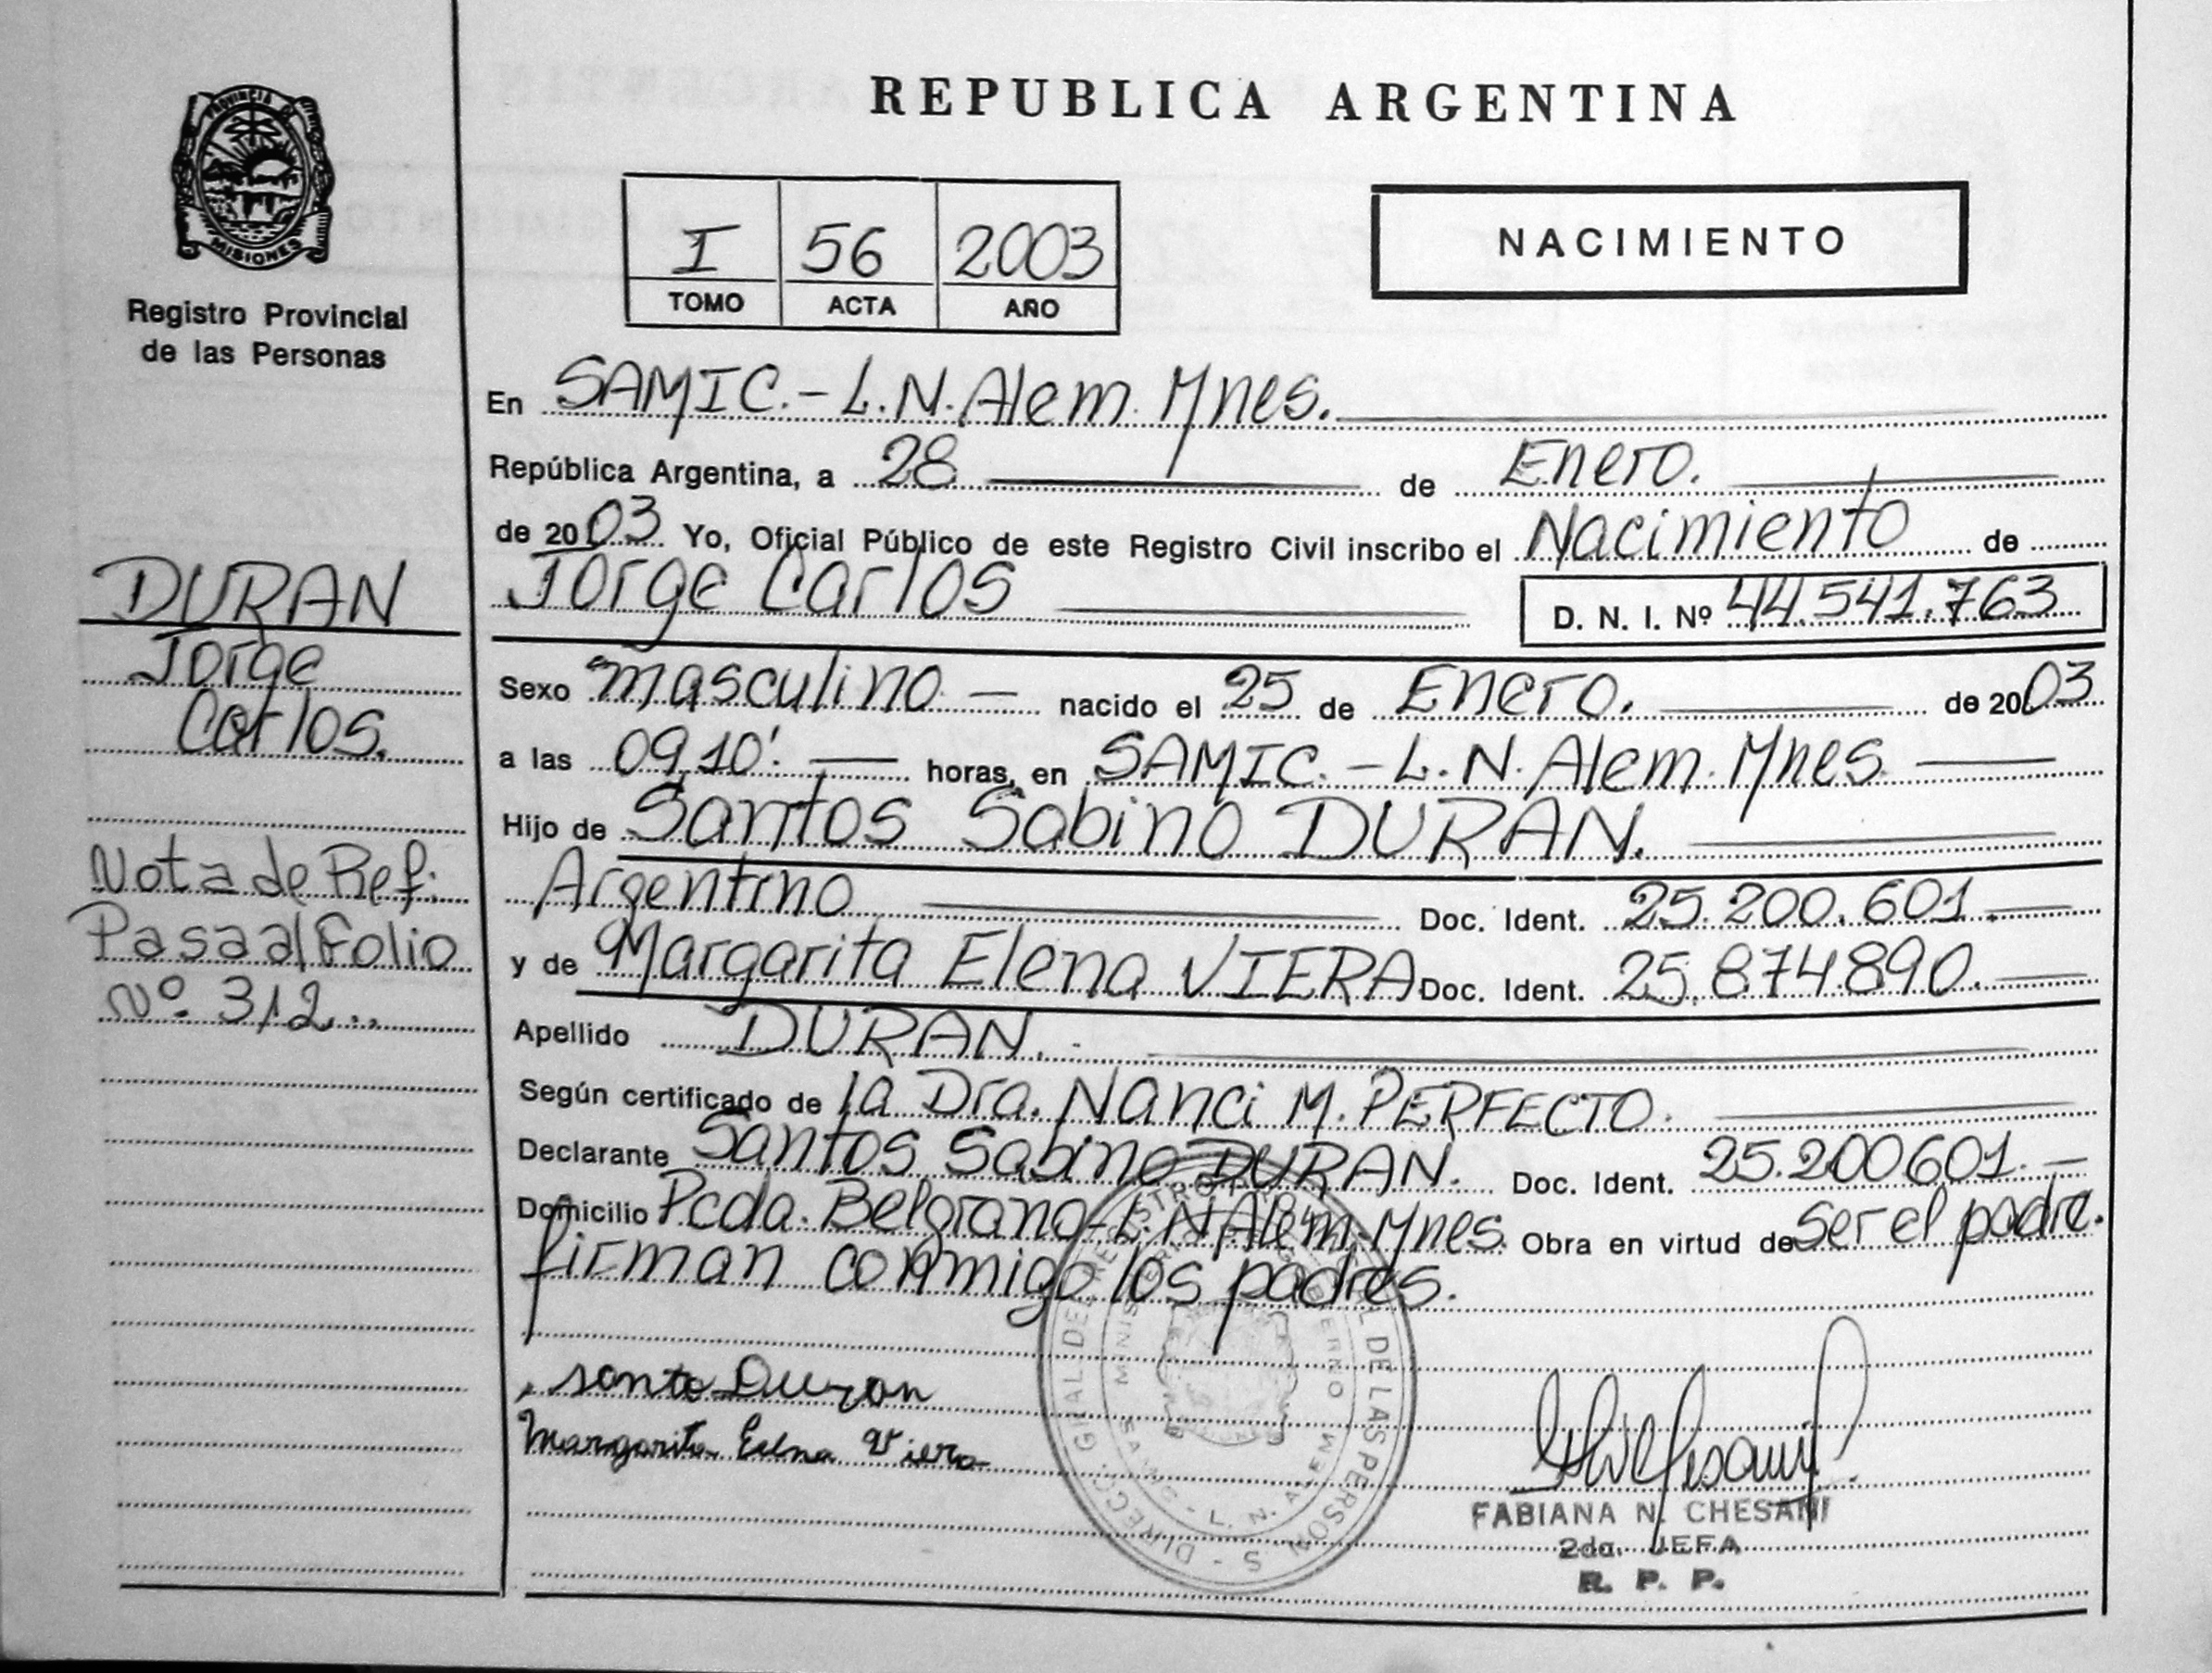 REPUBLICA ARGENTINA
PROVINCIA DE
MISIONES
Registro Provincial
de las Personas
I 56 2003
TOMO ACTA AÑO
NACIMIENTO
En SAMIC.- L.N.Alem. Mnes.
República Argentina, a 28 de Enero.
de 2003 Yo, Oficial Público de este Registro Civil inscribo el Nacimiento de
Jorge Carlos D. N. I. Nº 44.541.763
Sexo masculino nacido el 25 de Enero. de 2003
a las 09,10'. horas, en SAMIC.-L.N.Alem.Mnes
Hijo de Santos Sabino DURAN.
Argentino Doc. Ident. 25.200.601
y de Margarita Elena VIERA Doc. Ident. 25.874.890.
Apellido DURAN.
Según certificado de la Dra. Nanci M. PERFECTO.
Declarante Santos Sabino DURAN. Doc. Ident. 25.200601.
Domicilio Pcda. Belgrano-L.N.Alem.Mnes. Obra en virtud de Ser el padre.
firman conmigo los padres.
santo Duran
Margarita Eelna Viera
FABIANA N. CHESANI
2da. JEFA
R. P. P.
DURAN
Jorge
Carlos.
Nota de Ref:
Pasa al Folio
Nº 312..